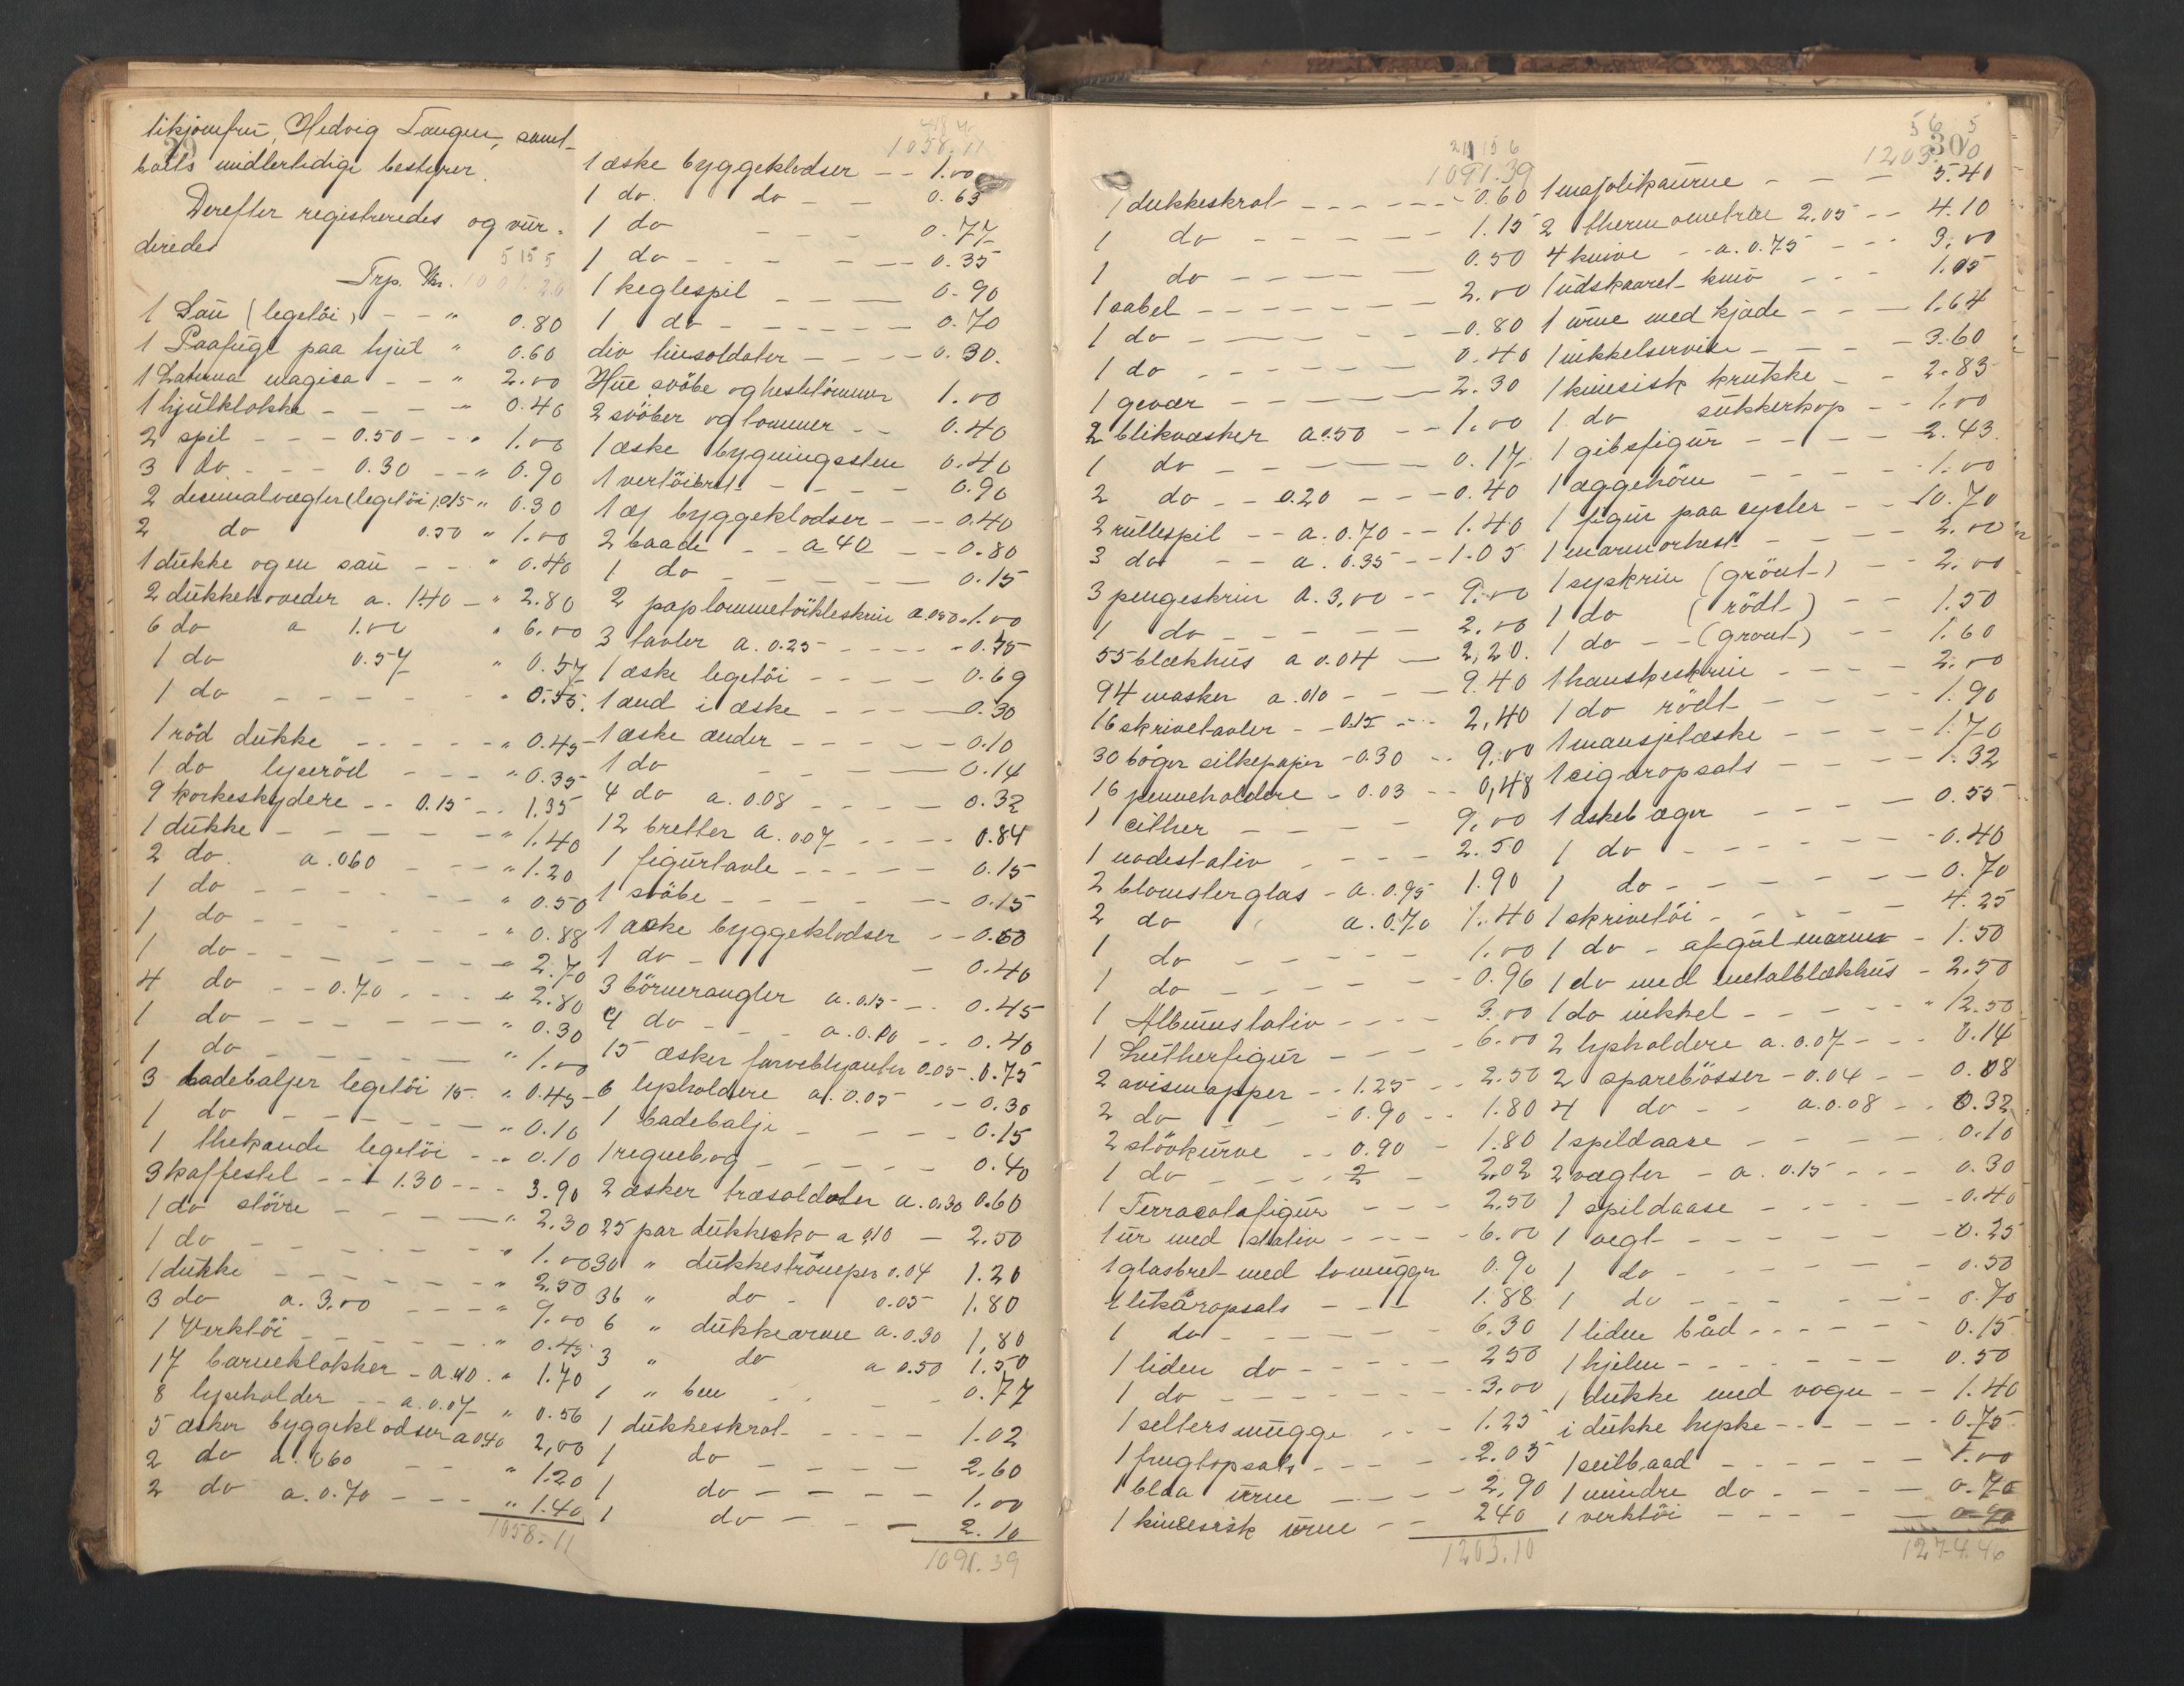 29
tikjomfru, Hedvig Tangen, samt
boets midlertidige bestyrer.
Derefter registreredes og vur-
deredes
Trp. Kr.
1 Sau (legetöi) - - " 0.80
1 Paafugl paa hjul " 0.60
1 Laterna magica - - " 2.00
1 hjulklokke - - - - " 0.40
2 spil - - - 0.50 - - " 1.00
3 do - - - 0.30 - - " 0.90
2 decimalvægter (legetöi) 0.15 " 0.30
2 do 0.50 " 1.00
1 dukke og en sau - - " 0.40
2 dukkehoveder a. 1.40 - " 2.80
6 do a 1.00 " 6.00
1 do 0.57 " 0.57
1 do - - - - - " 0.55.
1 röd dukke - - - - " 0.45
1 do lyseröd - - - " 0.35
9 korkeskydere - - 0.15 - - 1.35
1 dukke - - - - - " 1.40
2 do. a. 060 - - - " 1.20
1 do - - - - - " 0.50
1 do - - - - - " 0.88
1 do - - - - - " 2.70
4 do - - 0.70 - - - " 2.80
1 do - - - - - " 0.30
1 do - - - - - " 1.00
3 badebaljer legetöi 15 - " 0.45
1 do - - - - - " 0.10
1 thekande legetöi - - " 0.10
3 kaffestel - - - 1.30 - - - 3.90
1 do större - - - - " 2.30
1 do - - - - - " 1.00
1 dukke - - - - - " 2.50
3 do a. 3.00 - - - " 9.00
1 Verktöi - - - - - " 0.45
17 barneklokker - a 10 . " 1.70
8 lyseholder - - a. 0.07 " 0.56
5 æsker byggeklodser a 0.40 2,00
2 do a. 060 - - " 1.20
2 do a. 0.70 - - - " 1.40
1058.11
1058.11
1 æske byggeklodser - - 1.00
1 do. do - - 0.63
1 do - - - 0.77
1 do - - - - - 0.35
1 keglespil - - - - 0.90
1 do - - - - - 0.70
div tinsoldater - - - - 0.30.
Hue, svöbe og hestetömmer 1.00
2 svöber og lommer - - 0.40
1 æske bygningssten 0.40
1 vertöibret - - - - 0.90
1 æs byggeklodser - - - 0.40
2 baade - - a 40 - - 0.80
1 do - - - - - 0.15
2 pap lommetörklæskrin a 050 1.00
3 tavler a. 0.25 - - - - 0.75
1 æske legetöi - - - - 0.69
1 and i æske - - - - 0.30
1 æske ænder - - - - 0.10
1 do - - - - - 0.14
4 do a. 0.08 - - - - 0.32
12 bretter a. 0.07 - - - - 0.84
1 figurtavle - - - - - 0.15
1 svöbe - - - - - - 0.15
1 æske byggeklodser - - 0.63
1 do - - 0.40
3 börnerangler a. 0.15 - - 0.45
4 do - - - a. 0.10 - - 0.40
15 æsker farveblyanter 0.05 . 0.75
6 lysholdere a. 0.05 - - 0.30
1 badebalje - - - - - 0.15
1 regnebog - - - - - 0.40
2 æsker træsoldater a. 0.30 0.60
25 par dukkesko a 0.10 - 2.50
30 " dukkeströmper 0.04 1.20
36 " do - 0.05 1.80
6 " dukkearme a. 0.30 1,80
3 " do a 0.50 1.50
1 " ben - - - 0.77
1 dukkeskrot - - - - 1.02
1 do - - - - 2.60
1 do - - - - 1.00
1 do - - - 2.10
1091.39
1091.39
1 dukkeskrot - - - - - 0.60
1 do - - - - - 1.15
1 do - - - - - 0.50
1 sabel - - - - - 2.00
1 do - - - - - 0.80
1 do - - - - - 0.40
1 gevær - - - - - 2.30
2 blikvæsker a 0.50 - - 1.00
1 do - - - - - 0.17
2 do - - 0.20 - - - 0.40
2 rullespil - - a. 0.70 - - 1.40
3 do - - a. 0.35 - - 1.05
3 pengeskrin a. 3,00 - - 9.00
1 do - - - - - 2.00
55 blækhus a 0.04 - 2,20.
94 masker a. 010 - - - 9.40
16 skrivetavler - - 0.15 - - - 2,40
30 böger silkepapir - 0.30 - - 9.00
16 penneholdere - 0.03 - - 0,48
1 cither - - - - 9,00
1 nodestativ - - - - 2.50
2 blomsterglas - a. 0.95 1.90
2 do a. 0.70 1.40
1 do - - - - - 1.00
1 do - - - - - 0.96
1 Albumstativ - - - - 3.00
1 Lutherfigur - - - - 6.00
2 avismapper - - 1.25 - - 2.50
2 do - 0.90 - - 1.80
2 stövkurve - - 0.90 - 1.80
1 do - - - - 2 - 2.02
1 Terracotafigur - - - 2,50
1 ur med stativ - - - - 6.00
1 glasbret med to muggor 0.90
1 likøropsats - - - 1.88
1 do - - - - - 6.30
1 liden do - - - - - 250
1 do - - - - - 3.00
1 selters mugge - - - 1.25
1 frugtopsats - - - - 2.05
1 blaa urne - - - - 2.90
1 kinesisk urne - - 240
1203.10
30
1203.10
1 majolikaurne - - - 5.40
2 thermometere 2.05 - - 4.10
4 knive - - a. 0.75 - - - 3.00
1 udskaaret kniv - - - 1.05
1 urne med kjæde - - - 1.64
1 nikkelservice - - - 3.60
1 kinesisk krukke - - 2.83
1 do sukkerkop - - 1.00
1 gibsfigur - - - - 2.43.
1 æggehörn - - - - 1.00
1 figur paa cycler - - 10.70
1 marmorhest - - - - 2.00
1 syskrin (grönt) - - 2.00
1 do (rödt) - - 1.50
1 do - - (grönt) - - 1.60
1 hanskeskrin - - - - 2.00
1 do rödt - - - 1.90
1 mansjetæske - - - - 1.70
1 cigaropsats - - - - 1.32
1 askebæger - - - - 0.55
1 do - - - - - - 0.40
1 do - - - - - - 0.70
1 skrivetöi - - - - - 4.25
1 do - af gul marmor - 1.50
1 do med metalblækhus - 2.50
1 do nikkel - - - - - " 12.50
2 lysholdere a. 0.07 - - - 0.14
2 sparebösser - 0.04 - - 0.08
4 do - - a. 0.08 - - 0.32
1 spildaase - - - - - 0.10
2 vægter - a. 0.15 - - - 0.30
1 spildaase - - - - - 0.40
1 vegt - - - - - 0.25
1 do - - - - - 0.50
1 do - - - - - 0.70
1 liden båd - - - - - 0.15
1 hjelm - - - - - - 0.50
1 dukke med vogn - - 1.40
1 dukke hypke - - - - - 0.75
1 seilbaad - - - - - 1.00
1 mindre do - - - - 0.70
1 verktöi - - - - -
1274.40